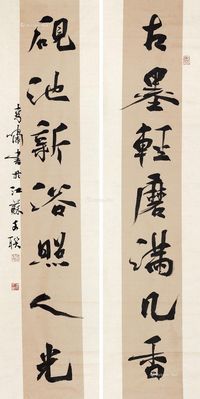 古墨輕磨滿几香
硯池新浴照人光
書於江蘇文聯